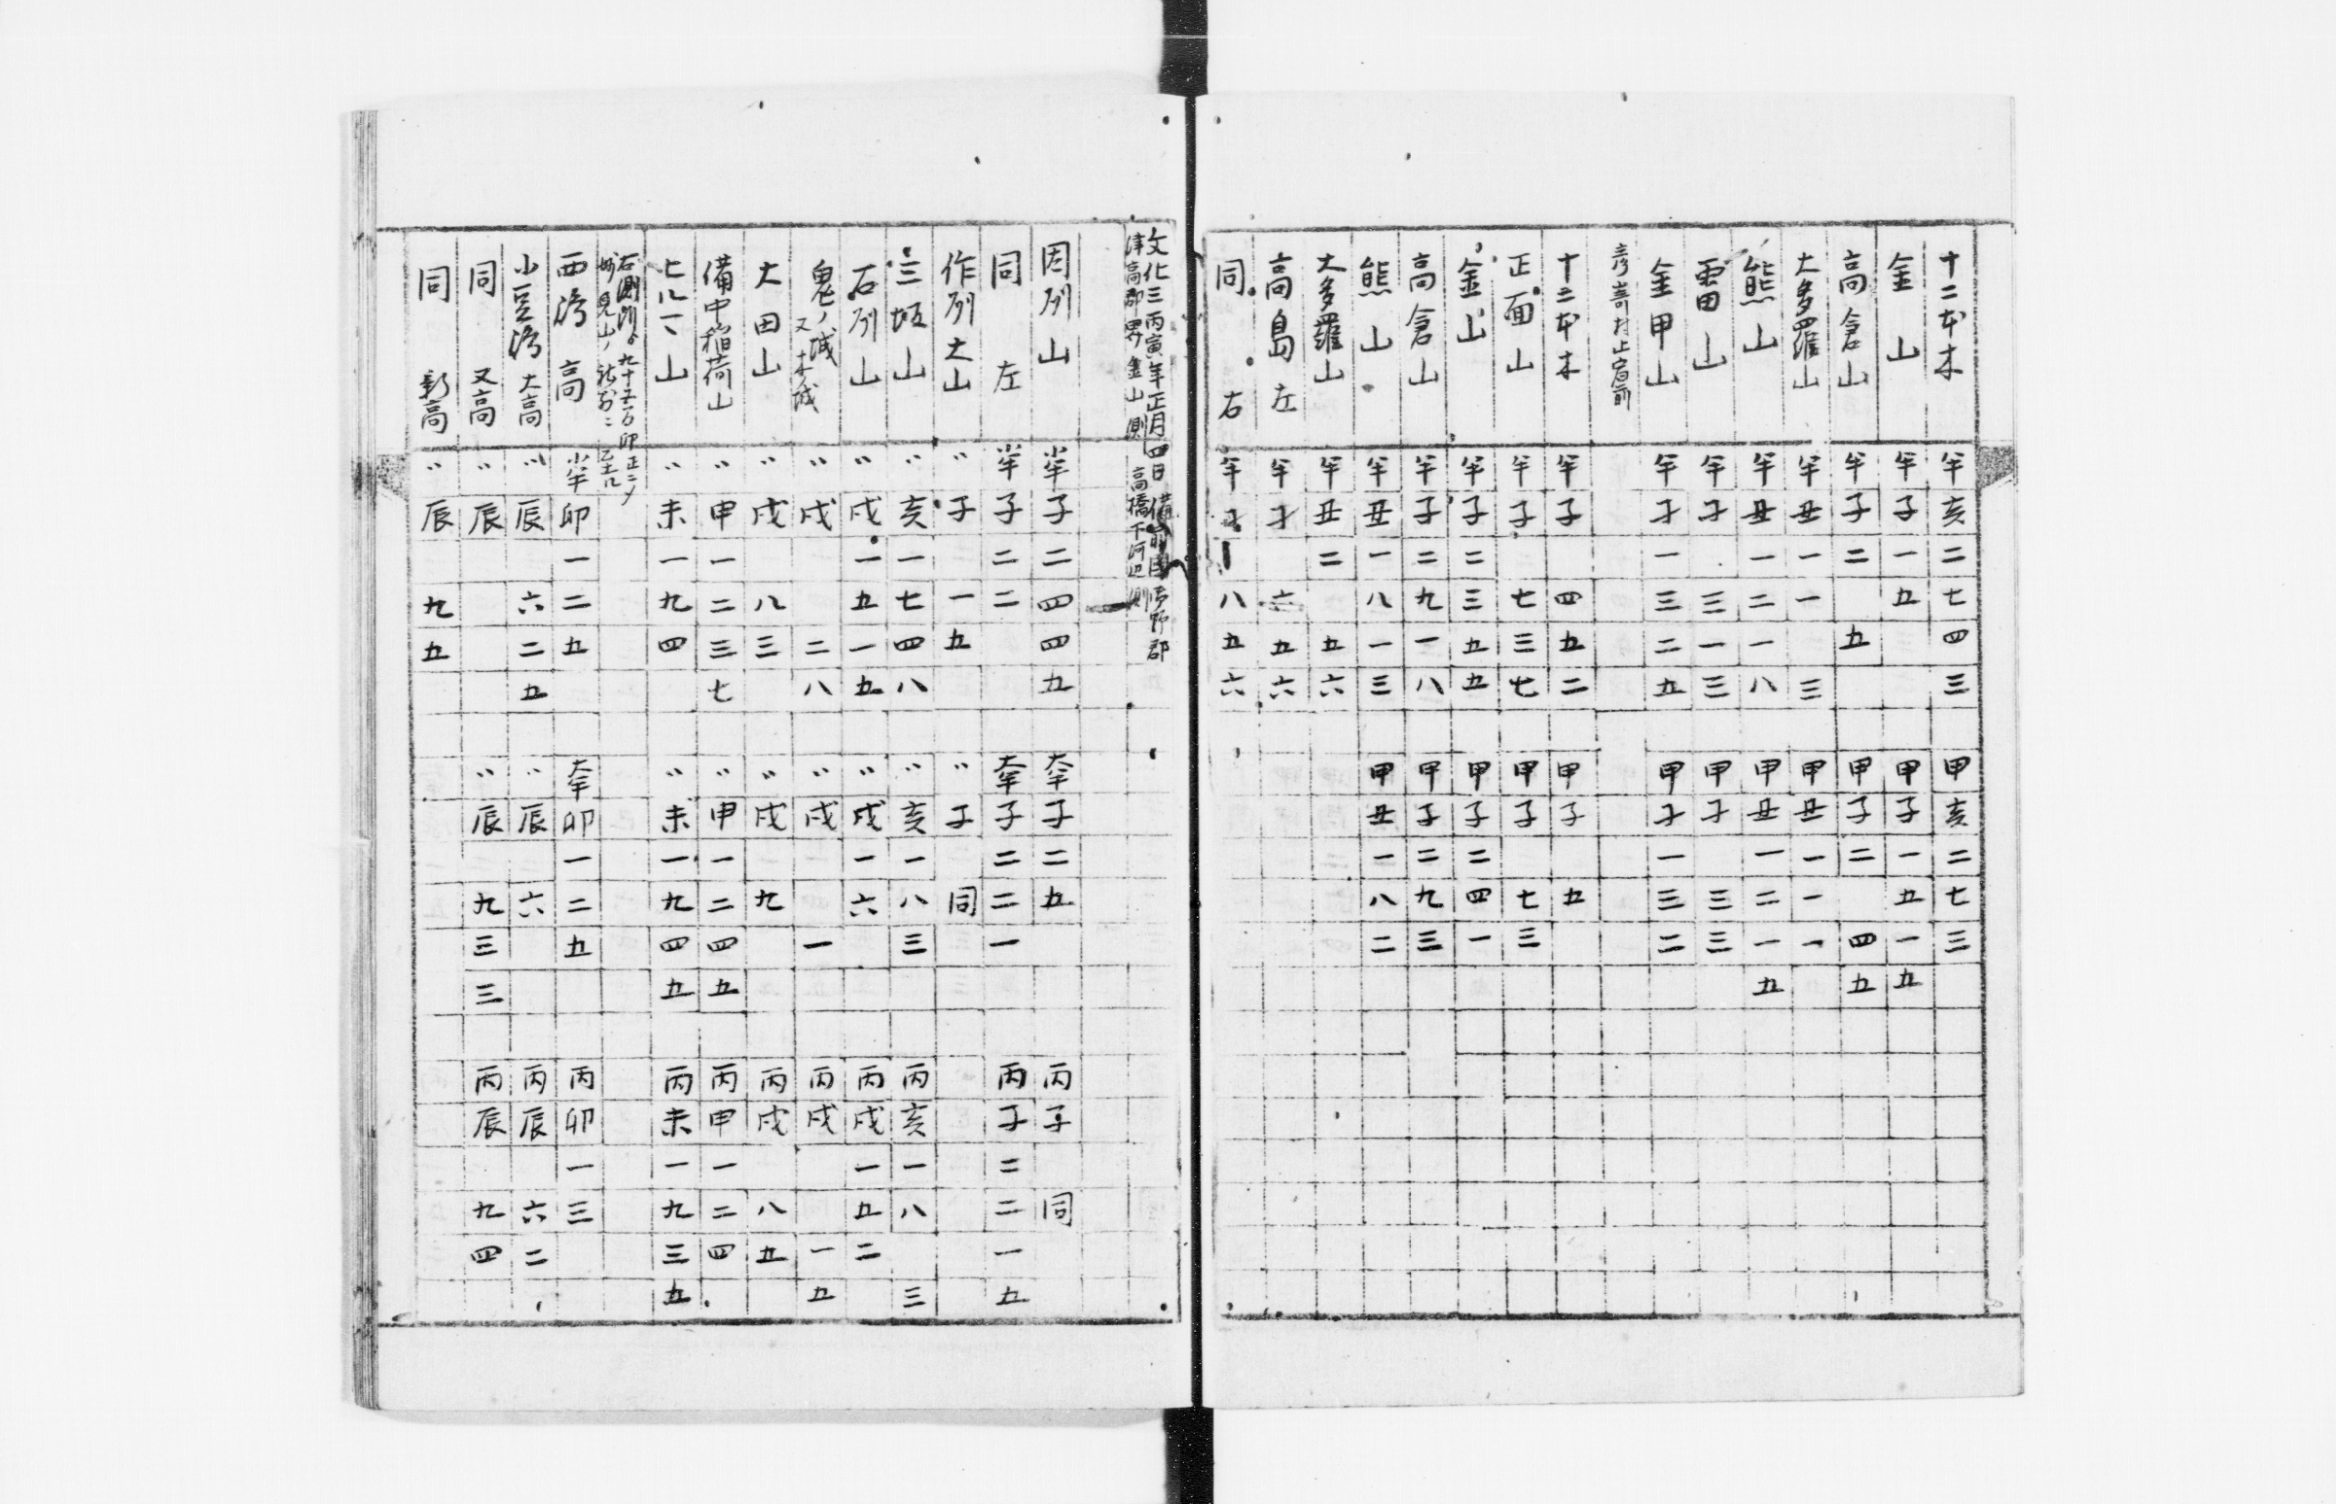 十二本木 半亥二七四三 甲亥二七三
金山 半子一五 甲子一五一五
高倉山 半子二 五 甲子二 四五
大多羅山 半丑一一 三 甲丑一一一
熊山 半丑一二一八 甲丑一二一五
雷山 半子 三一三 甲子 三三
金甲山 半子一三二五 甲子一三二
十二本木 半子 四五二 甲子 五
正面山 半子 七三七 甲子 七三
金山 半子二三五五 甲子二四一
高倉山 半子二九一八 甲子二九三
熊山 半丑一八一三 甲丑一八二
大多羅山 半丑二 五六
高島左 半子 六五六
同右 半子一八五六
文化三丙寅年正月四日備前国御野郡
津高郡界金山測 高橋下河辺測
因州山 小半子二四四五 大半子二五 丙子 同
同左 小半子二二 大半子二二一 丙子二二一五
作州大山 〃子 一五 〃子 同
三坂山 〃亥一七四八 〃亥一八三 丙亥一八 三
石州山 〃戌一五一五 〃戌一六 丙戌一五二
鬼ノ城 又木ノ城 〃戌 二八 〃戌 一 丙戌 一五
大田山 〃戌 八三 〃戌 九 丙戌 八五
備中稲荷山 〃申一二三七 〃申一二四五 丙申一二四
七ハ一山 〃未一九四 〃未一九四五 丙未一九三五
右測所ゟ九十五間卯正ニメ
妙見山ノ社前ニ
西湾高 小半卯一二五 大半卯一二五 丙卯一三
小豆湾大高 〃辰 六二五 〃辰 六 丙辰 六二
同又高 〃辰 〃辰 九三三 丙辰 九四
同新高 〃辰 九五